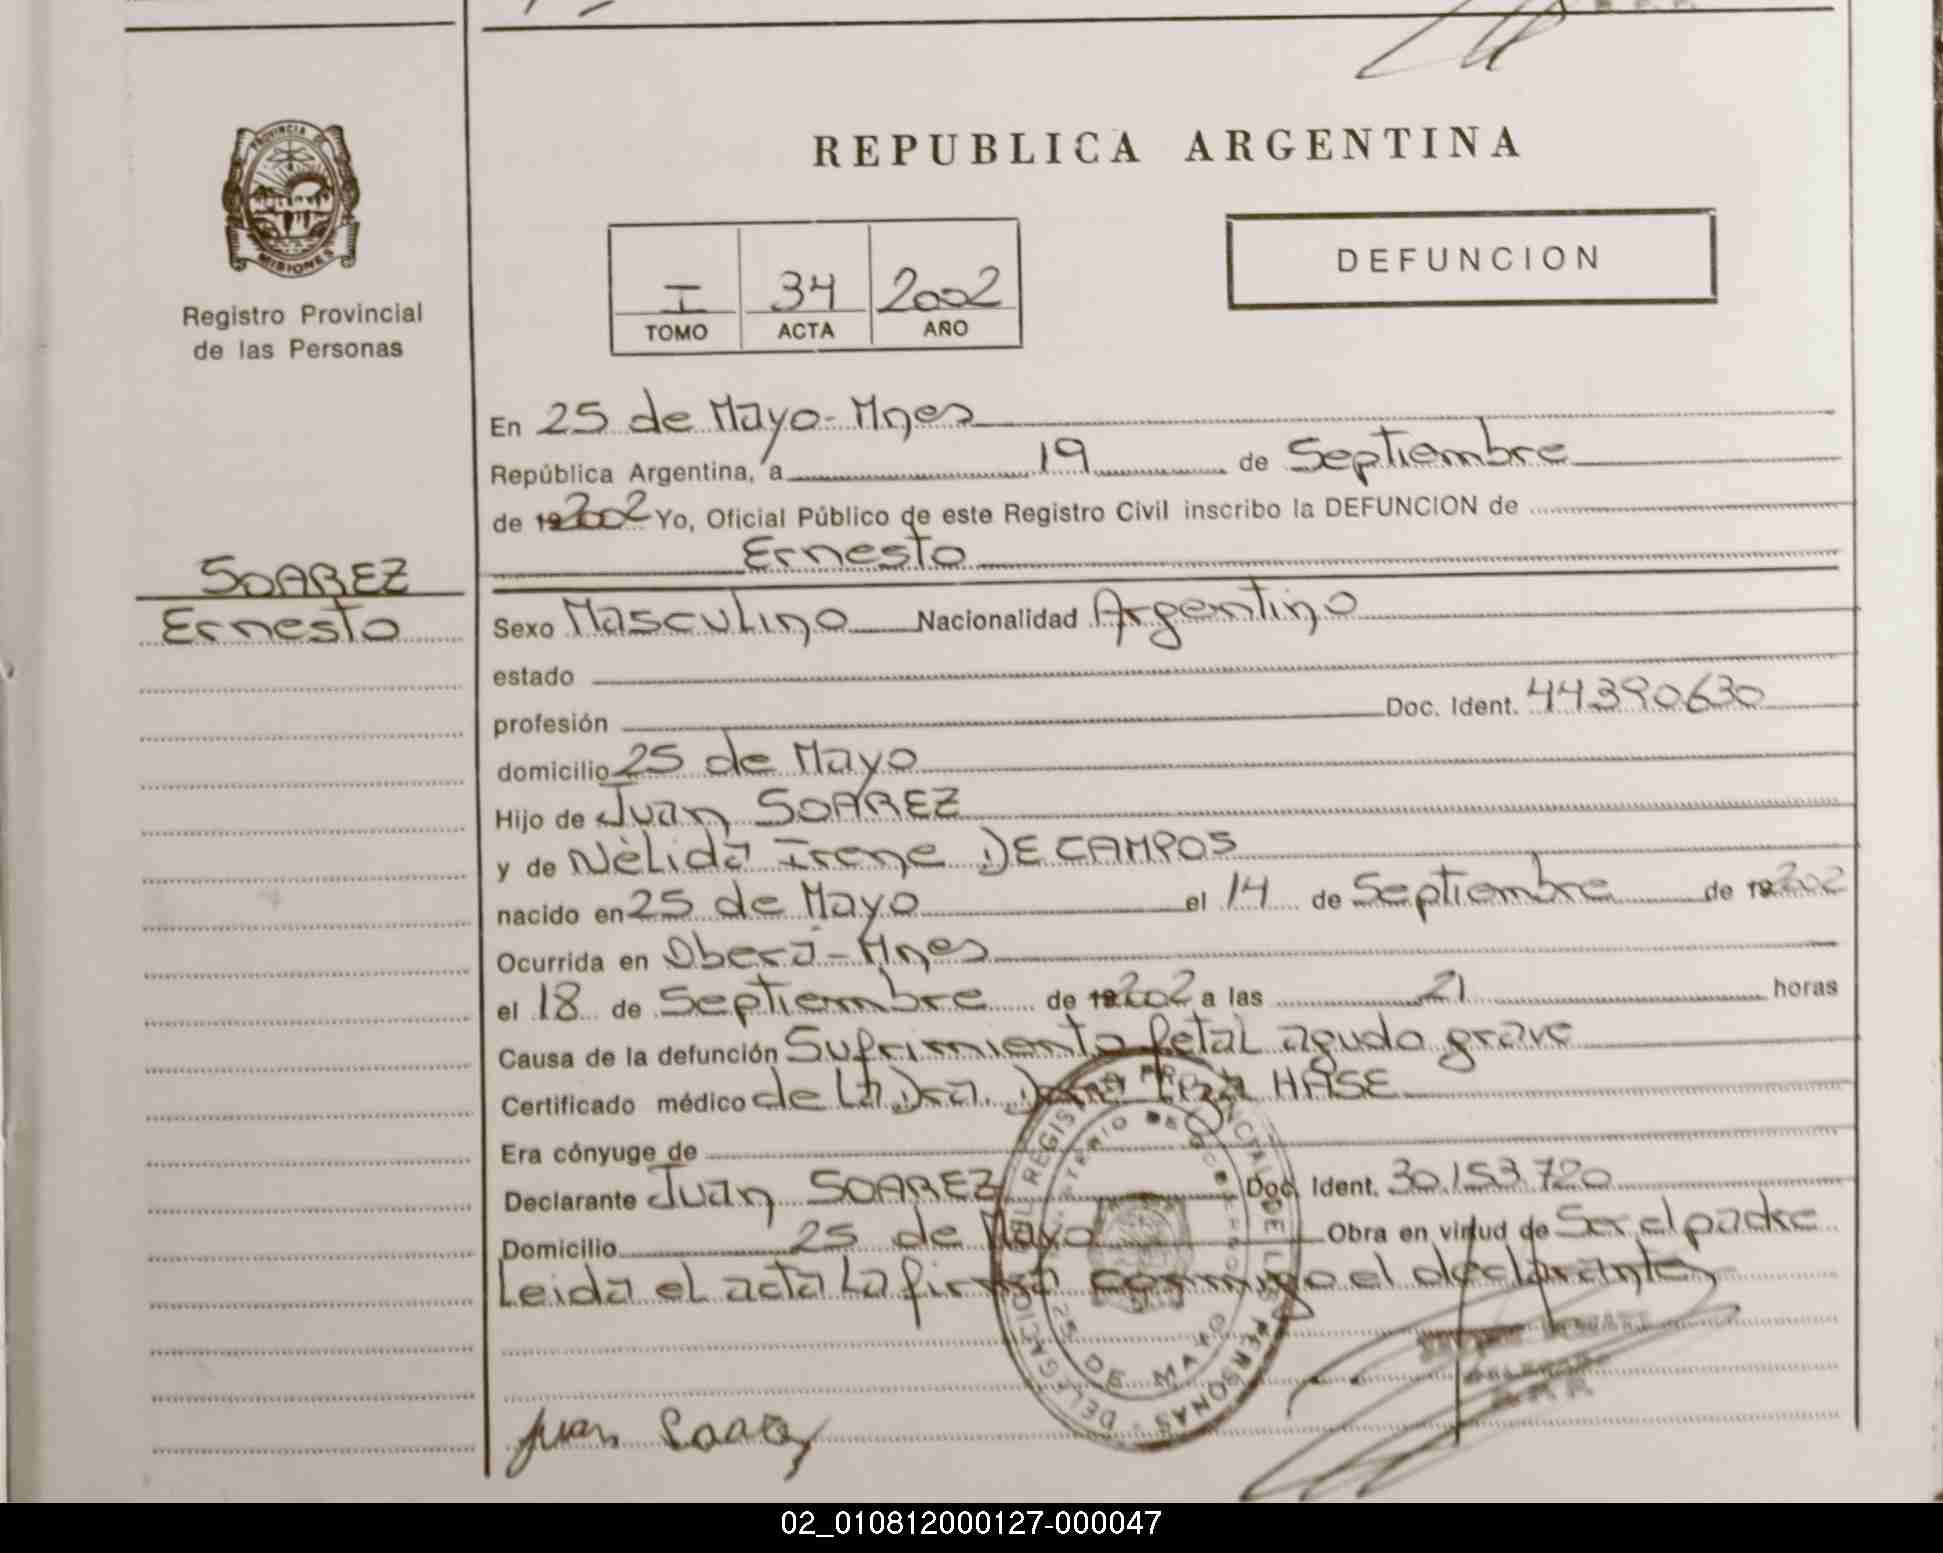 PROVINCIA DE
MISIONES
Registro Provincial
de las Personas
REPUBLICA ARGENTINA
I 34 2002
TOMO ACTA AÑO
DEFUNCION
En 25 de Mayo - Mnes
República Argentina, a 19 de Septiembre
de 192002 Yo, Oficial Público de este Registro Civil inscribo la DEFUNCION de
Ernesto
SOAREZ
Ernesto
Sexo Masculino Nacionalidad Argentino
estado
profesión Doc. Ident. 44390630
domicilio 25 de Mayo
Hijo de Juan SOAREZ
y de Nèlida Irene DE CAMPOS
nacido en 25 de Mayo el 14 de Septiembre de 192002
Ocurrida en Oberá - Mnes
el 18 de Septiembre de 192002 a las 21 horas
Causa de la defunción Sufrimiento fetal agudo grave
Certificado médico de la Dra. HASE
Era cónyuge de
Declarante Juan SOAREZ Doc. Ident. 30.153.720
Domicilio 25 de Mayo Obra en virtud de Ser el padre
Leida el acta la firma conmigo el declarante
25 DE MAYO
Juan Soarez
02_010812000127-000047